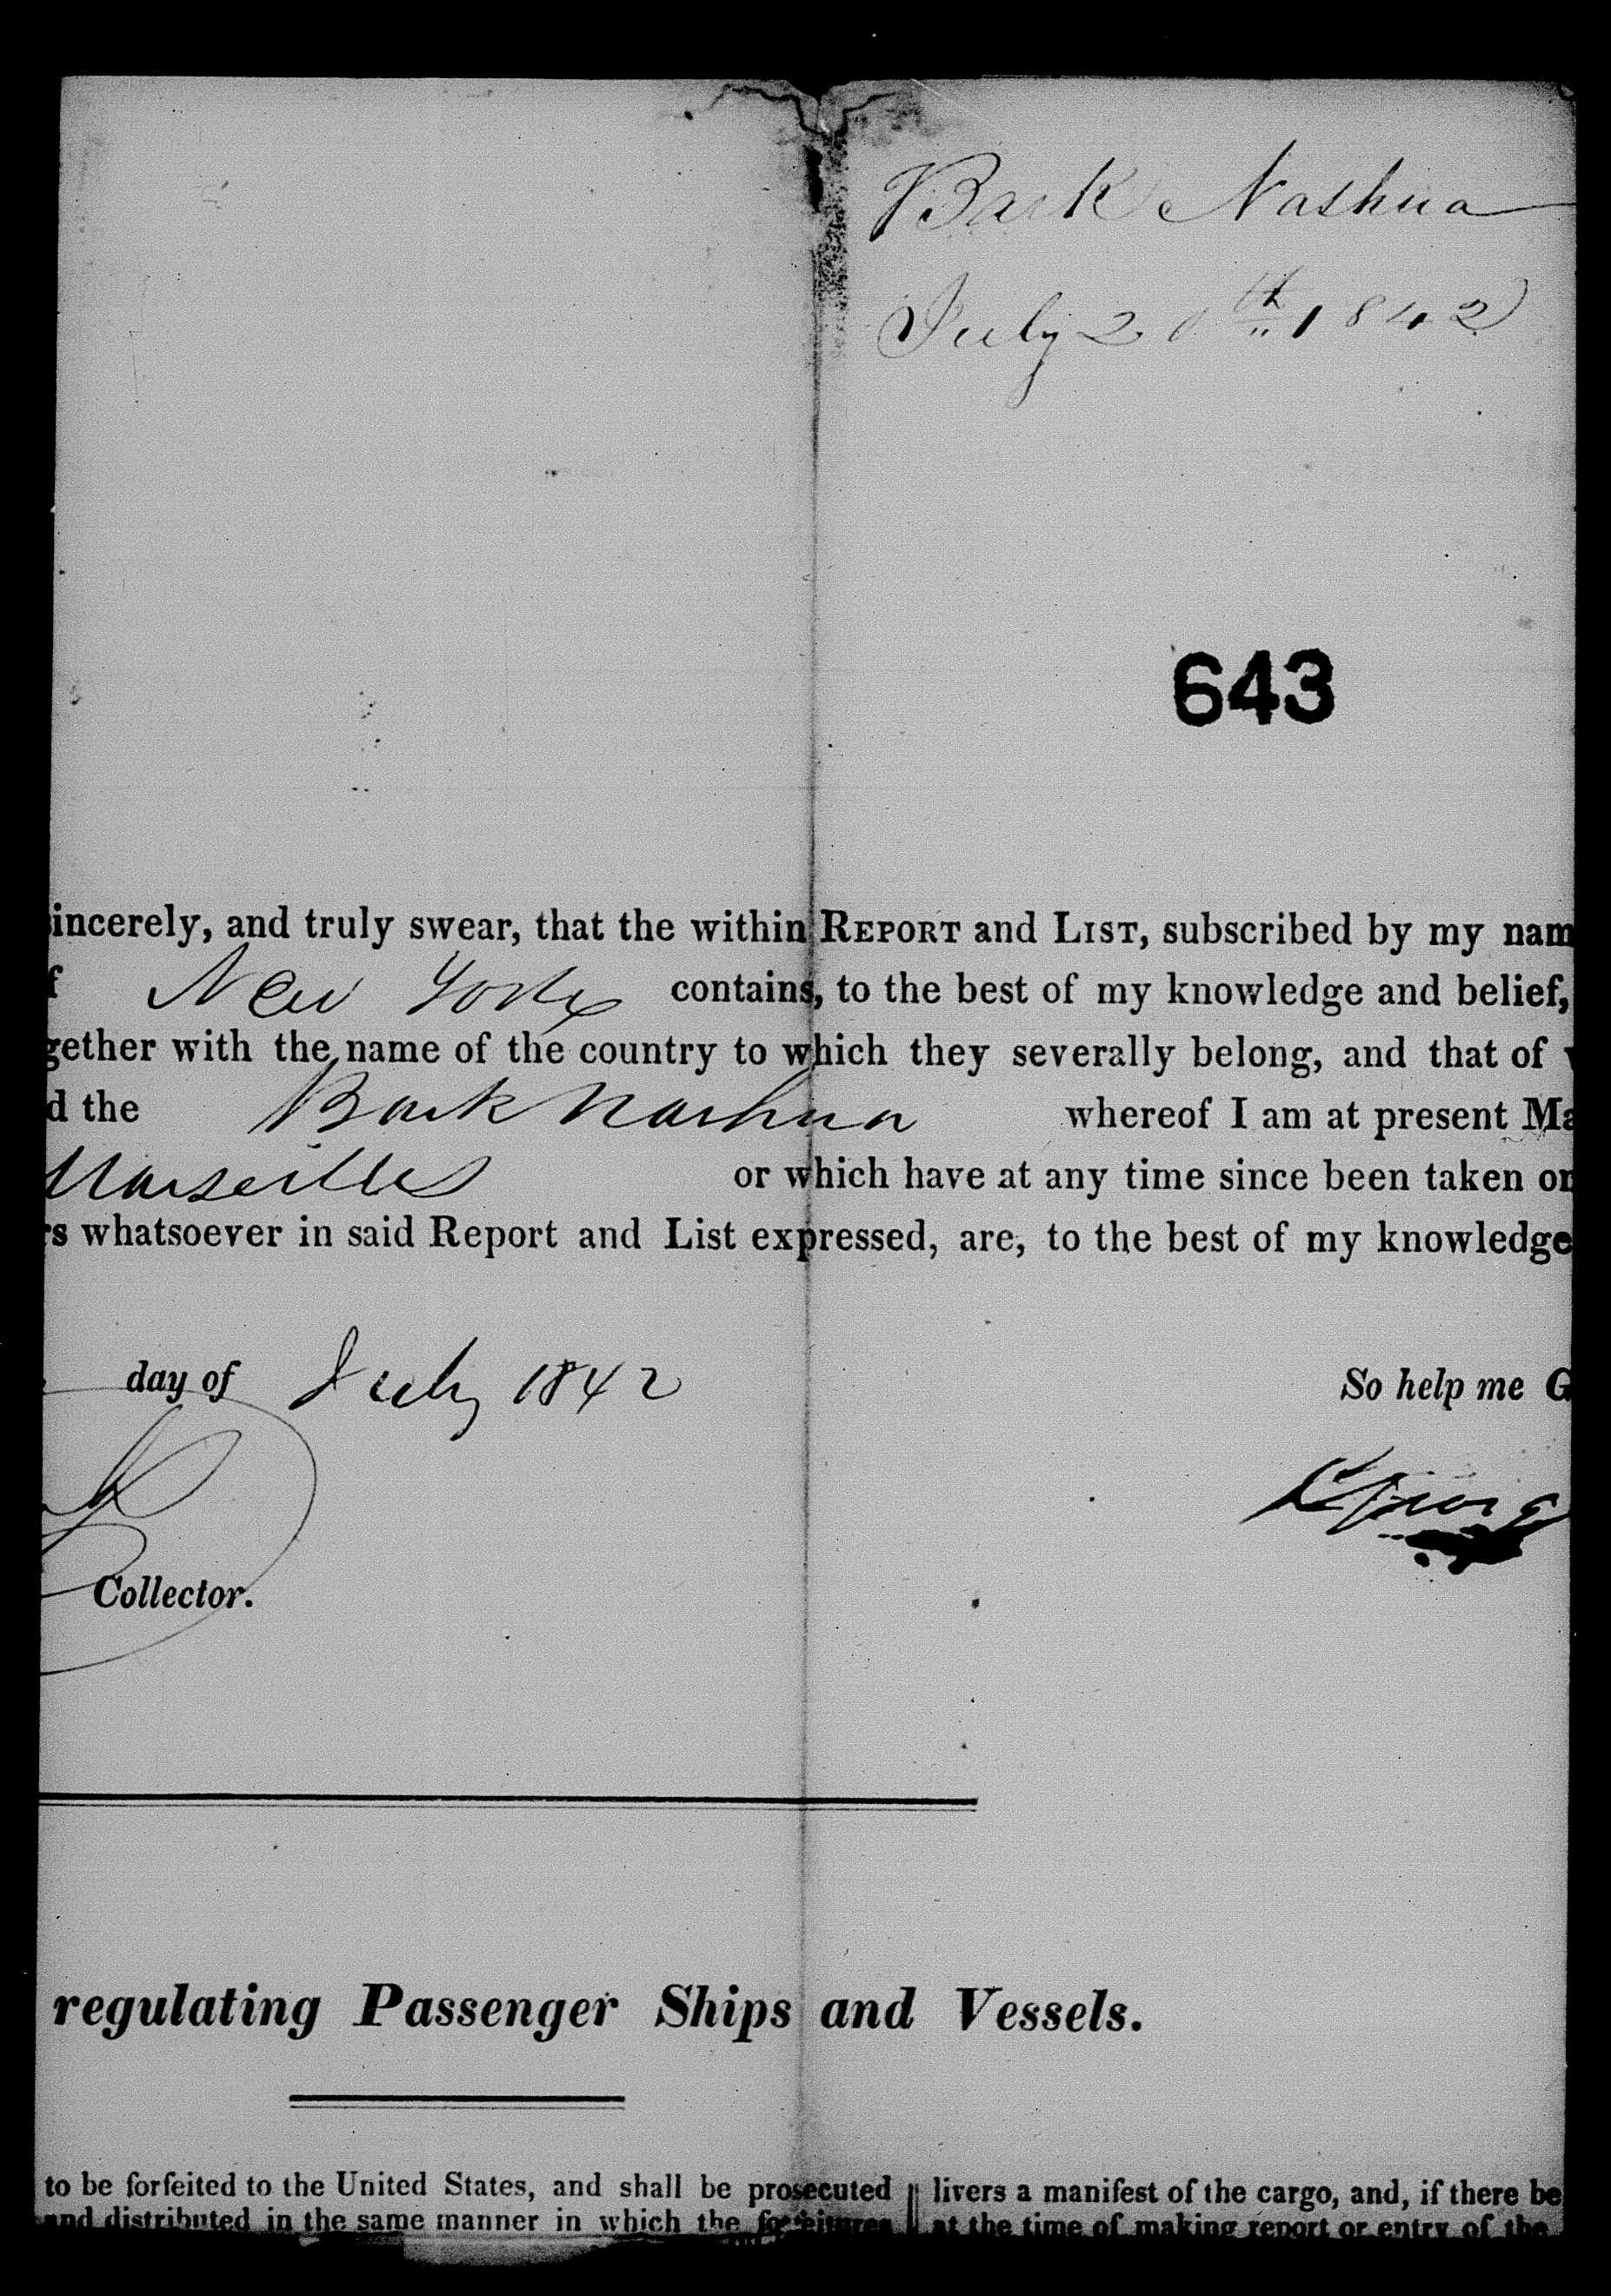 Bark Nashua
July 20th 1842
643
incerely, and truly swear, that the within REPORT and LIST, subscribed by my nam
f New York contains, to the best of my knowledge and belief,
gether with the name of the country to which they severally belong, and that of
d the Bark Nashua whereof I am at present Ma
Marseilles or which have at any time since been taken on
rs whatsoever in said Report and List expressed, are, to the best of my knowledge
day of July 1842 So help me G
Georg
Collector.
regulating Passenger Ships and Vessels.
to be forfeited to the United States, and shall be prosecuted livers a manifest of the cargo, and, if there be
and distributed in the same manner in which the forfeitures at the time of making report or entry of the